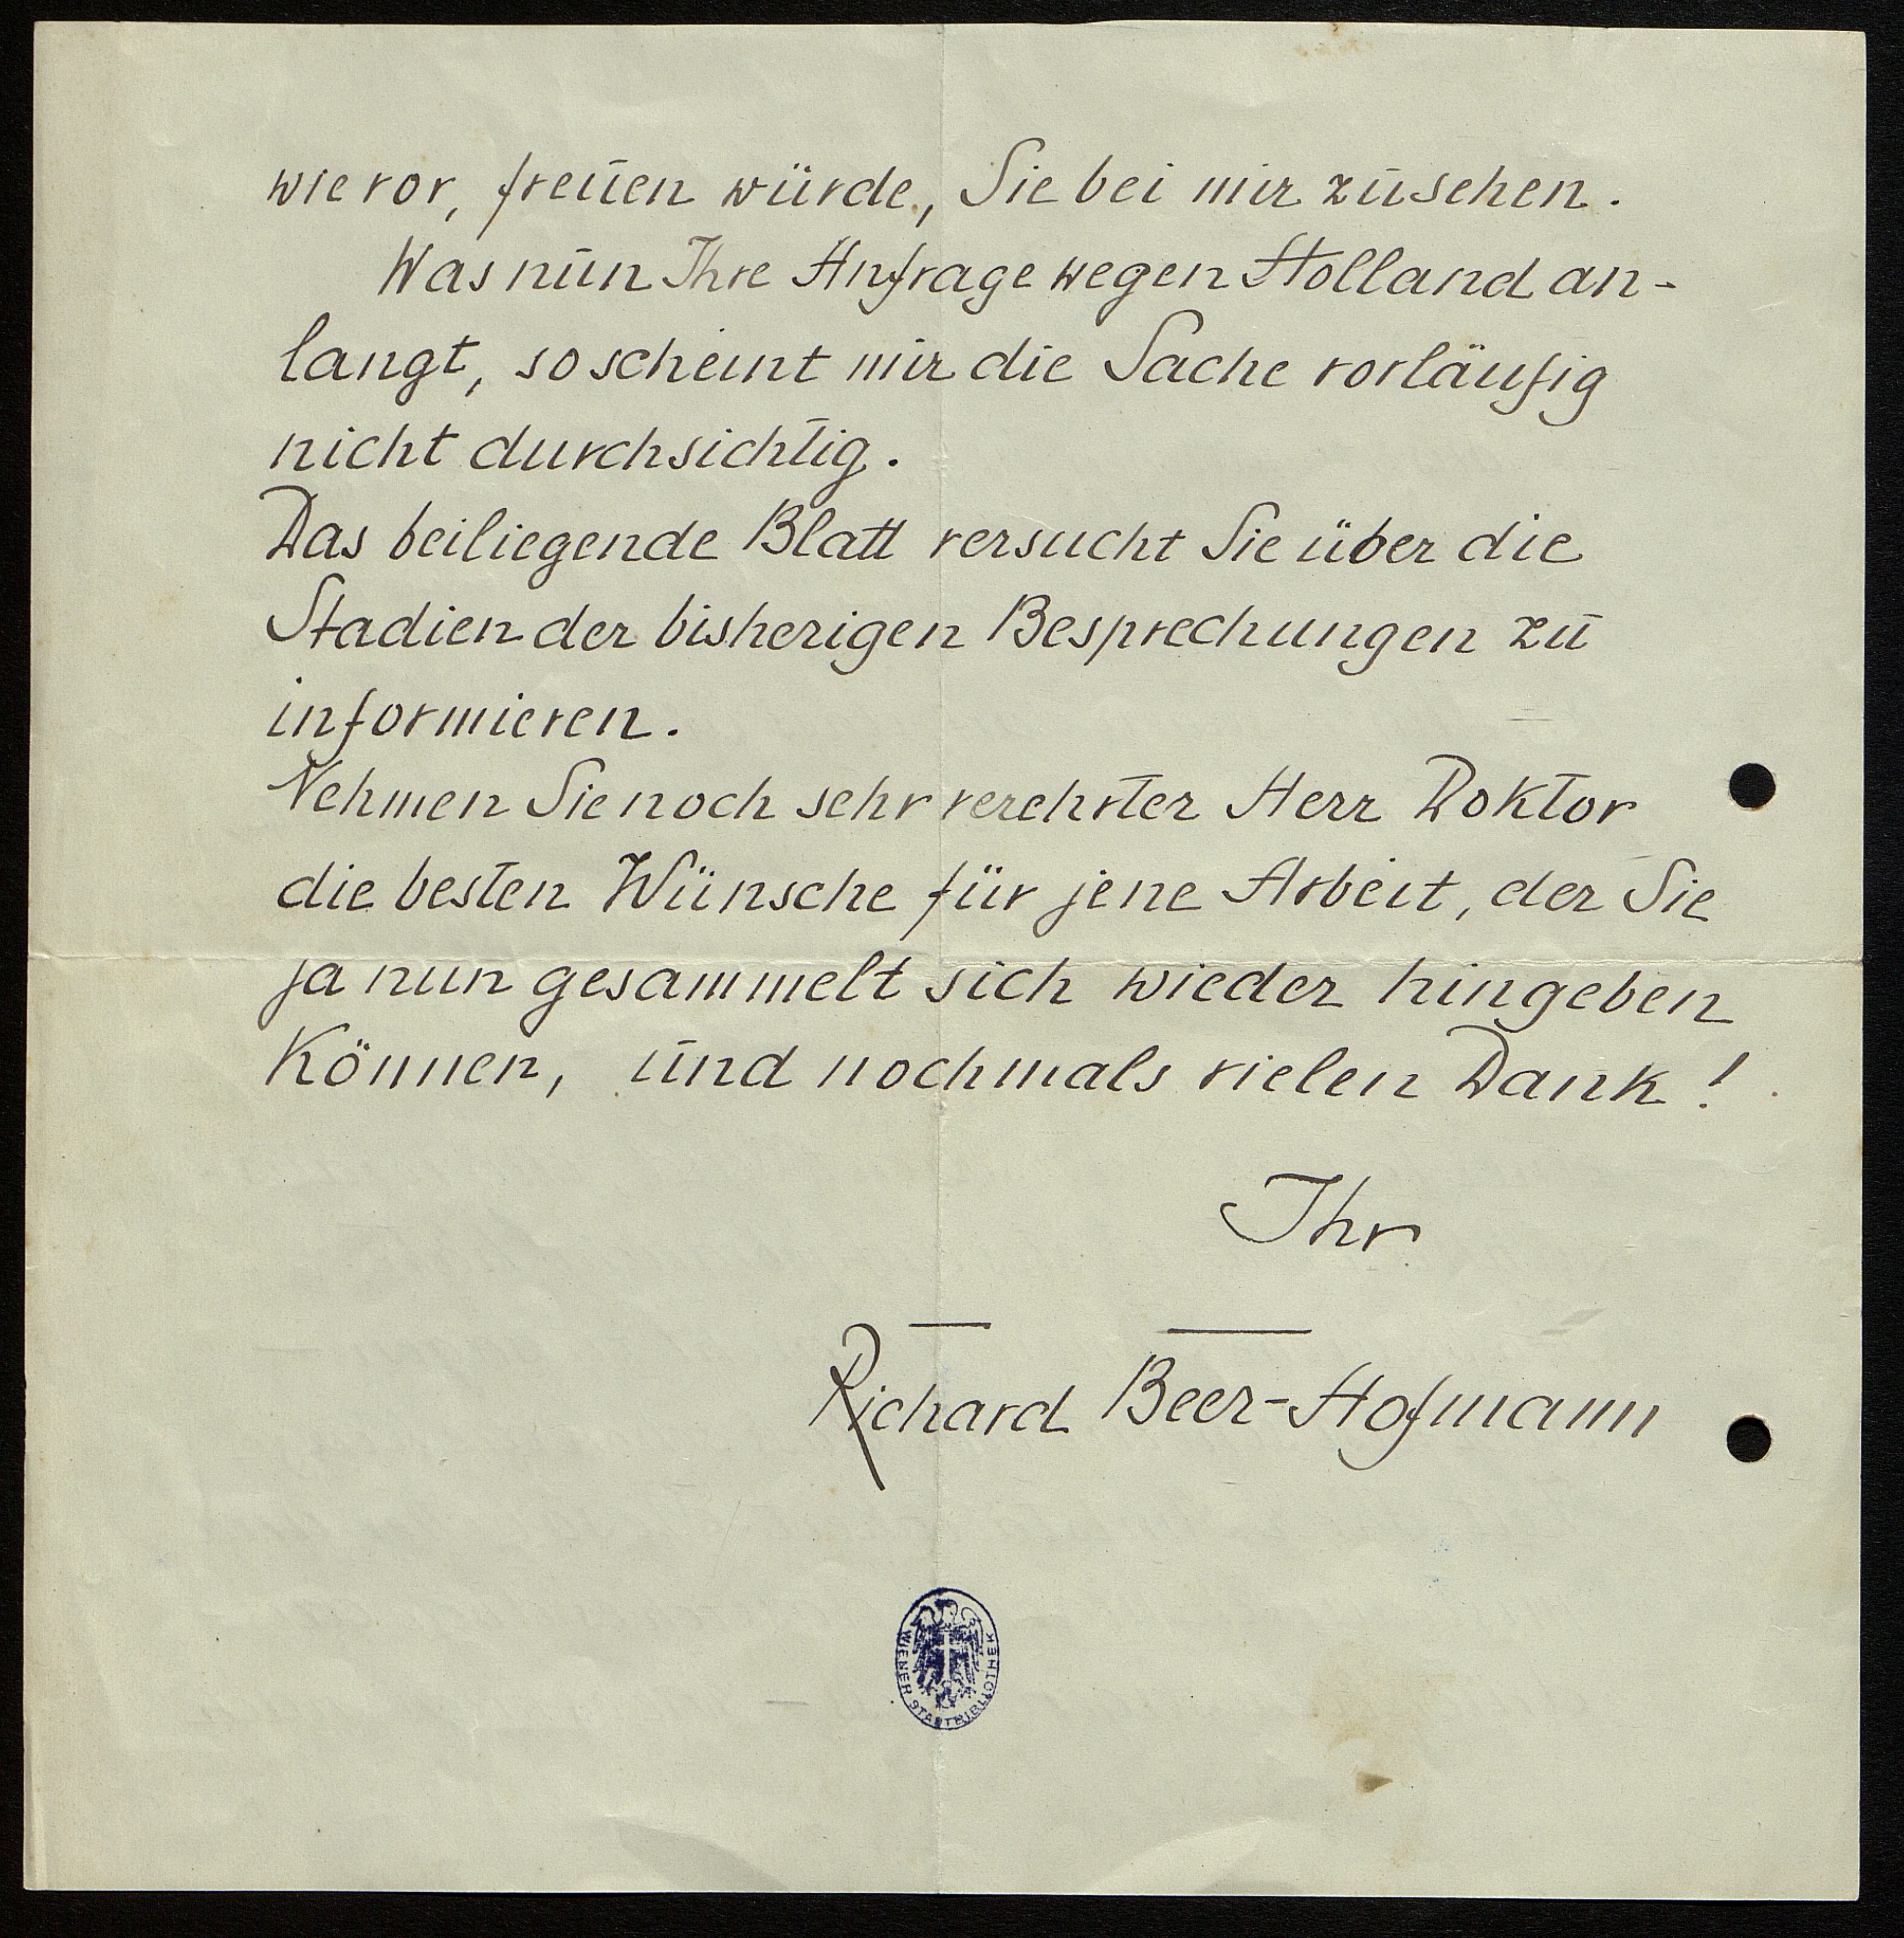 wie vor, freuen würde, Sie bei mir zu sehen.
Was nun Ihre Anfrage wegen Holland an-
langt, so scheint mir die Sache vorläufig
nicht durchsichtig.
Das beiliegende Blatt versucht Sie über die
Stadien der bisherigen Besprechungen zu
informieren.
Nehmen Sie noch sehr verehrter Herr Doktor
die besten Wünsche für jene Arbeit, der Sie
ja nun gesammelt sich wieder hingeben
können, und nochmals vielen Dank!
Ihr
Richard Beer-Hofmann
WIENER STADTBIBLIOTHEK